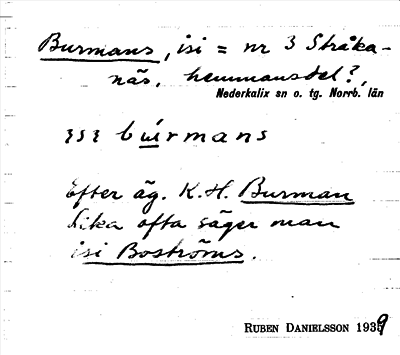 Burmans, isi = nr 3 Stråka-
näs, hemmansdel?,
Nederkalix sn o. tg. Norrb. län
búrmans
Efter äg. K.H. Burman
Lika ofta säger man
isi Boströms.
RUBEN DANIELSSON 1939